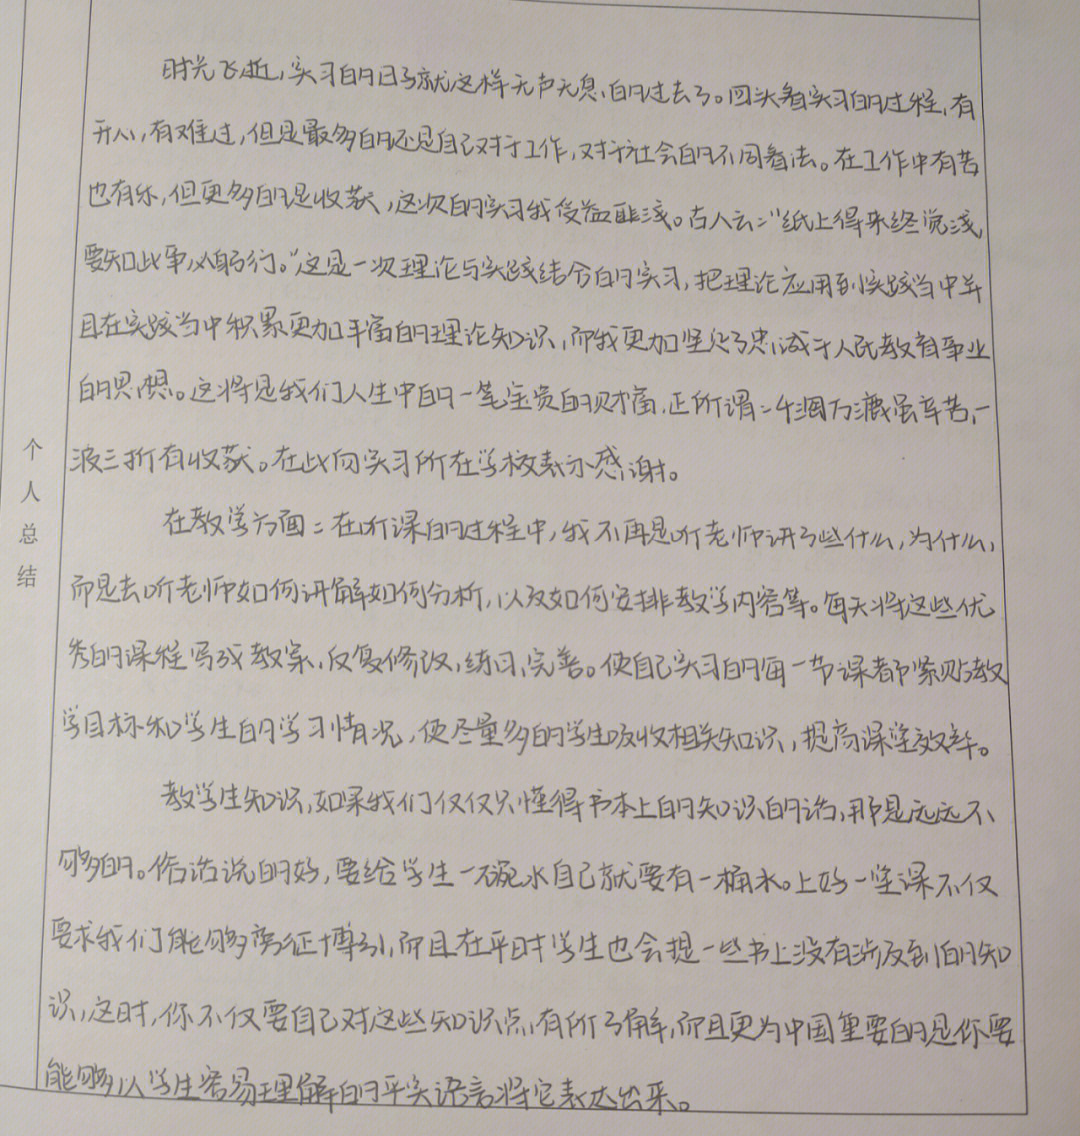 时光飞逝,实习的日子就这样无声无息的过去了。回头看实习的过程,有
开心,有难过,但是最多的还是自己对于工作,对于社会的不同看法。在工作中有苦
也有乐,但更多的是收获,这次的实习我受益匪浅。古人云:“纸上得来终觉浅,
要知此事必躬行。”这是一次理论与实践结合的实习,把理论应用到实践当中并
且在实践当中积累更加丰富的理论知识,而我更加坚定了忠诚于人民教育事业
的思想。这将是我们人生中的一笔宝贵的财富,正所谓:千淘万漉虽辛苦,一
波三折有收获。在此向实习所在学校表示感谢。
在教学方面:在听课的过程中,我不再是听老师讲了些什么,为什么,
而是去听老师如何讲解如何分析,以及如何安排教学内容等。每天将这些优
秀的课程写成教案,反复修改,练习,完善。使自己实习的每一节课都紧贴教
学目标和学生的学习情况,使尽量多的学生吸收相关知识,提高课堂效率。
教学生知识,如果我们仅仅只懂得书本上的知识的话,那是远远不
够的。俗话说的好,要给学生一碗水自己就要有一桶水。上好一堂课不仅
要求我们能够旁征博引,而且在平时学生也会提一些书上没有涉及到的知
识,这时,你不仅要自己对这些知识点,有所了解,而且更为中国重要的是你要
能够以学生容易理解的平实语言将它表达出来。
个
人
总
结